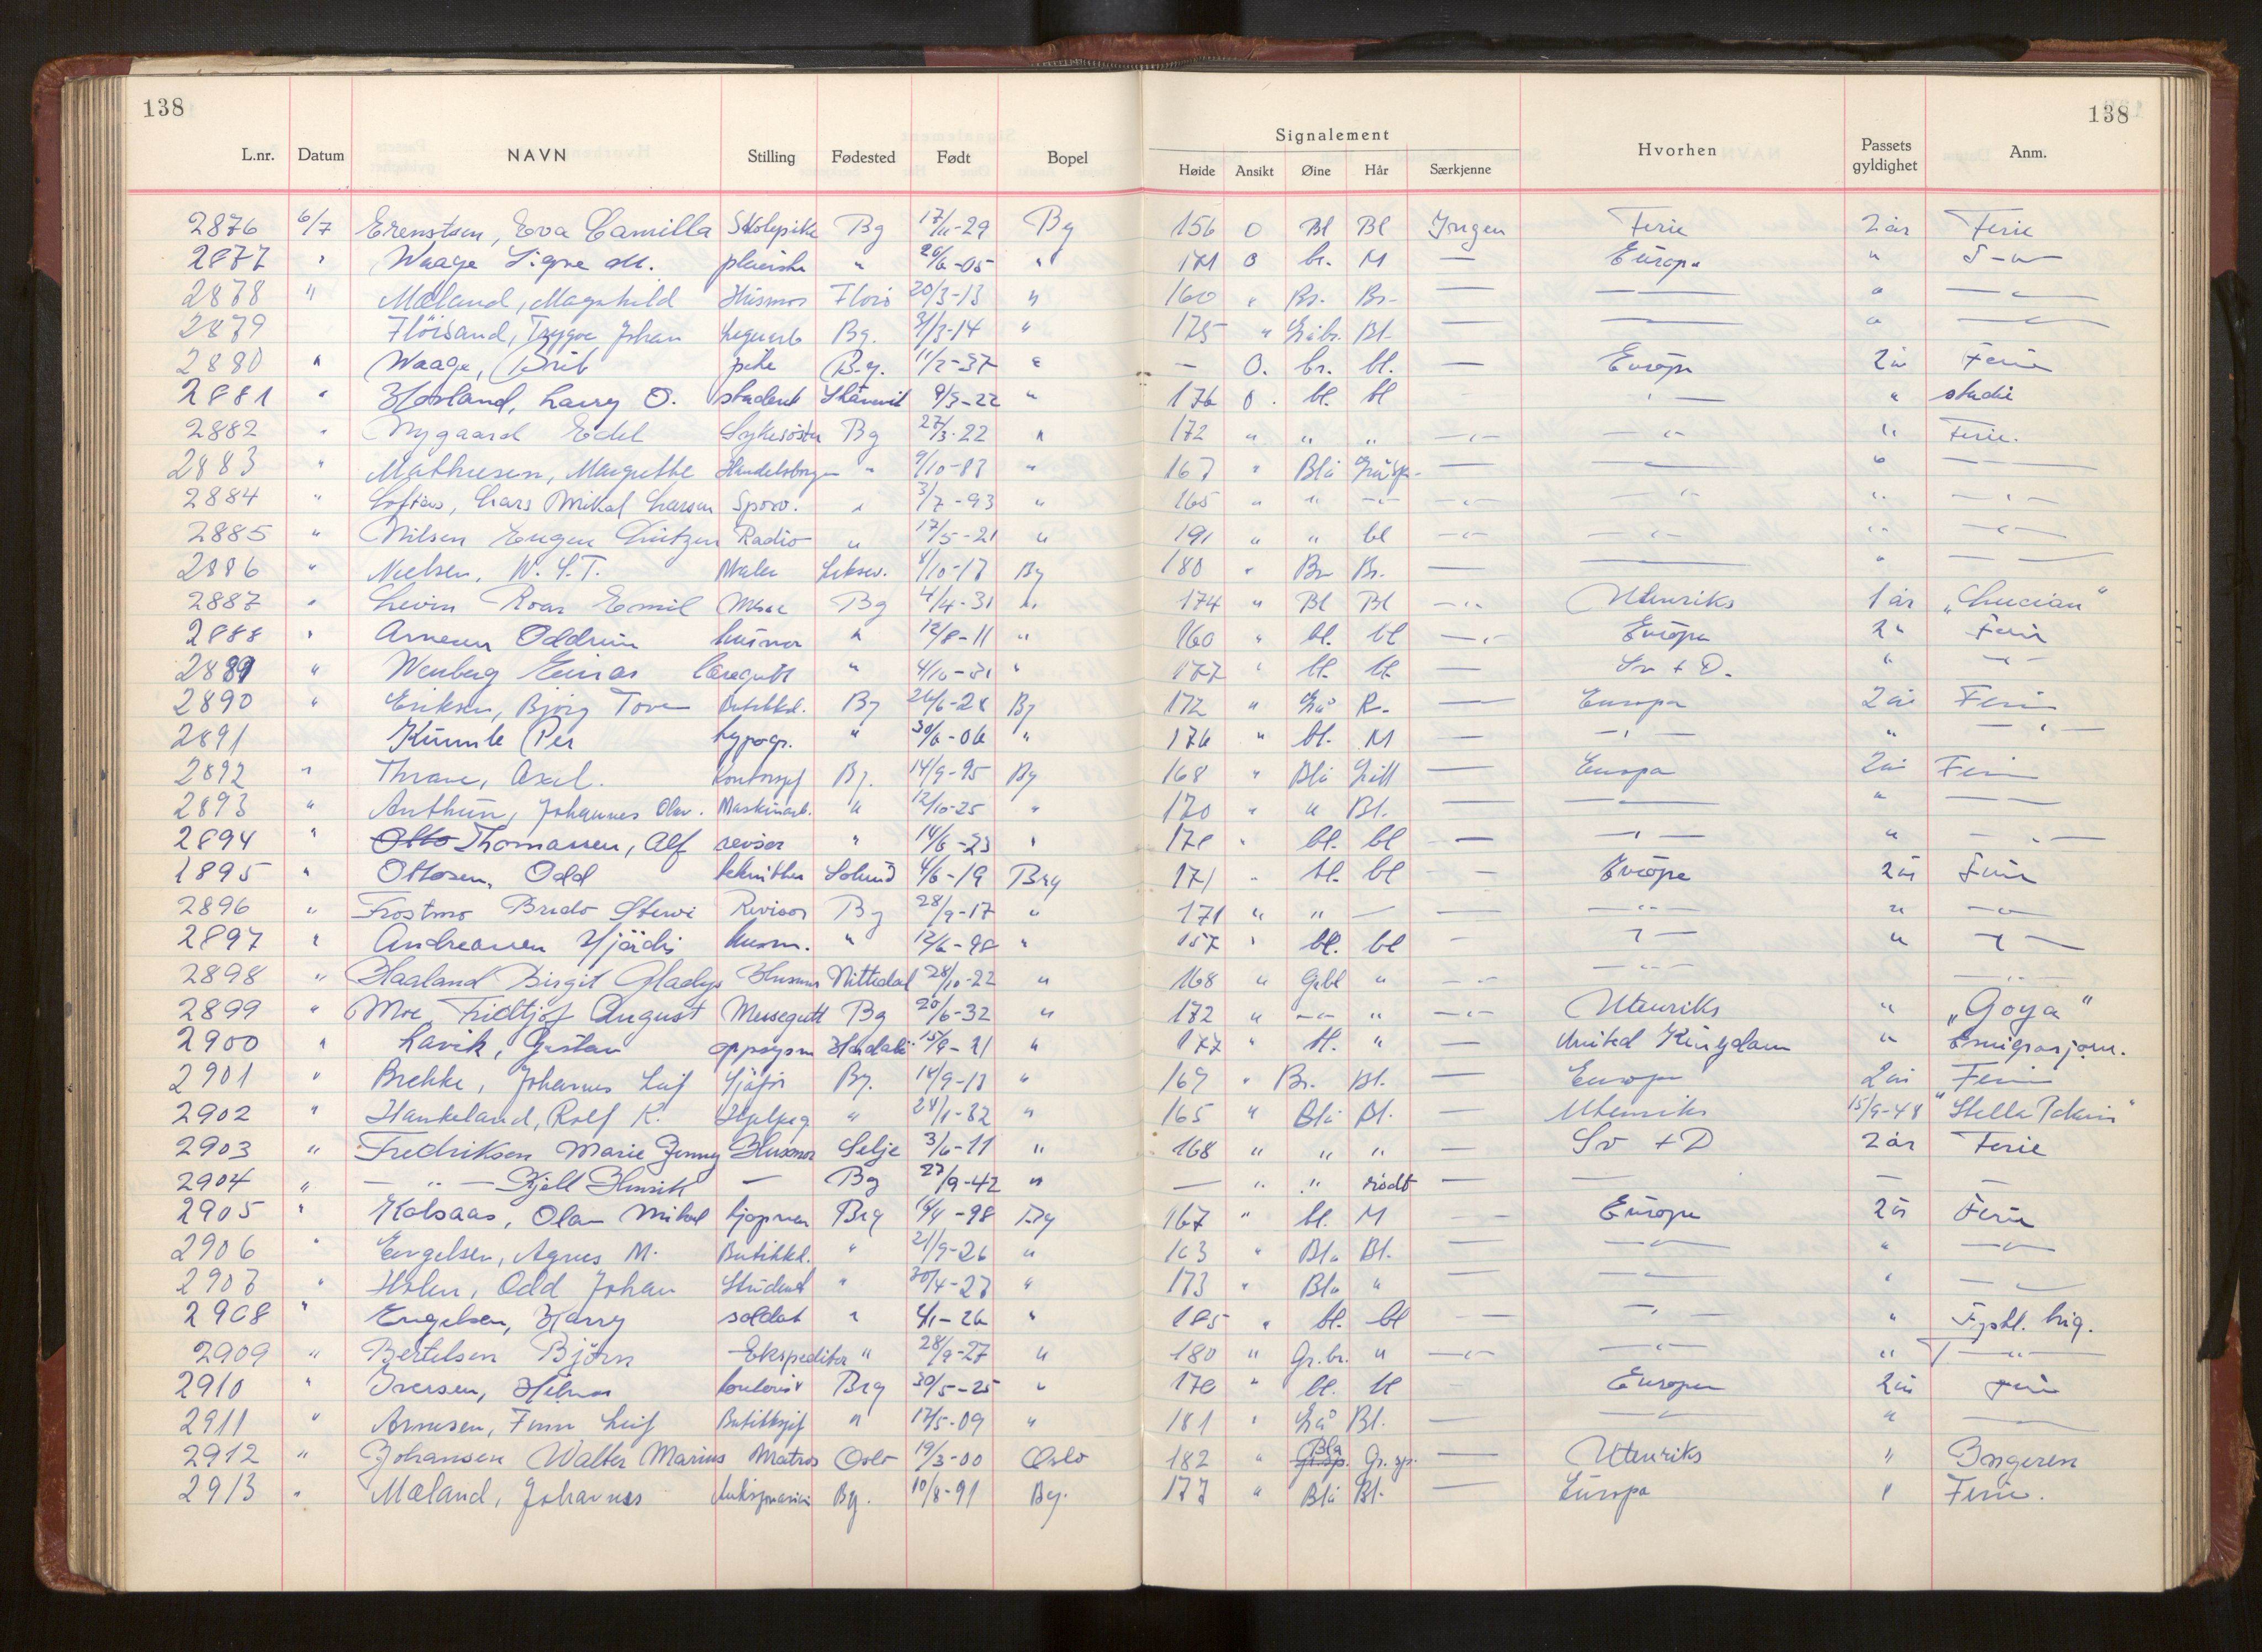 138 138
Signalement
L.nr. Datum NAVN Stilling Fødested Født Bopel Høide Ansikt Øine Hår Særkjenne Hvorhen Passets gyldighet Anm.
2876 6/7 Erenstsen, Eva Camilla Skolepike Bg 17/11-29 Bg 156 O Bl Bl Ingen Ferie 2 år Ferie
2877 " Waage Signe M. " 26/6-05 " 171 O br. M — Europa "
2878 " Mæland, Magnhild Husmor Florø 20/3-13 " 160 " Br. Br. — — " —
2879 Flöisand, Trygve Johan Bg. 31/3-14 " 175 " Gåbr. Bl. — — " —
2880 " Waage, Brit pike Bg. 11/2-37 " — O. br. bl. — Europa 2 år Ferie
2881 " Hosland, Larry O. student 9/3-22 " 176 O. bl. bl — " studie
2882 " Nygaard Edel Sykesöster Bg 27/3-22 " 172 " " " — " — — " — " Ferie.
2883 " Mathiesen, Margrethe " 9/10-87 " 167 " Blå — — " —
2884 " Loftås, Lars Mikal Larsen Sporv. " 3/7-93 " 165 " " — " — — " — " — " —
2885 " Nilsen Eugen Radio " 17/5-21 " 191 " " bl — " — — " — " — " —
2886 " Nielsen, W. S. T. Maler Leksv. 8/10-17 Bg 180 " Br Br. — — " —
2887 " Levin Roar Emil Bg 4/4-31 " 174 " Bl Bl — " — Utenriks 1 år „Lucian"
2888 " Arnesen Oddrun husmor " 12/8-11 " 160 " bl. bl — " — Europa 2 " Ferie
2889 " Wenberg Einar læregutt " 4/10-31 " 177 " bl. bl. — Sv + D. " — " —
2890 " Eriksen, Bjørg Tove Butikkd. Bg 26/6-28 Bg 172 " Grå R. — Europa 2 år Ferie
2891 Kümmle Per typogr. " 30/6-06 " 176 " bl. M — — " — " — " —
2892 " Thrane, Axel. Kontorsjef Bg. 14/9-95 Bg 168 " Blå Grått — Europa 2 år Ferie
2893 " Anthun, Johannes Olav. Maskinarb. " 12/10-25 " 170 " " Bl. — — " —
2894 " Otto Thomassen, Alf revisor " 14/6-23 " 178 " bl. bl — — " — " — " —
1895 " Ottosen, Odd tekniker Solund 4/6-19 Brg 171 " bl. bl — Europa 2 år Ferie
2896 " Frostmo Revisor Bg 28/9-17 " 171 " " — — — " — " — " —
2897 " Andreassen Hjördis husm. " 12/6-98 " 157 " bl. bl — " — " — " —
2898 " Haaland Birgit Gladys Husmor Nittedal 28/10-22 " 168 " Gråbl " — " — — " — — " —
2899 " Moe Fridtjof August Messegutt Bg 20/6-32 " 172 " — " — " — " — Utenriks " „Goya"
2900 " Lavik, Gustav oppsynsm 15/9-21 " 177 " bl. " — United Kingdom " Emigrasjon.
2901 " Brekke, Johannes Leif Sjåför Bg. 14/9-13 " 169 " Br. Bl. — Europa 2 år Ferie
2902 " Haukeland, Rolf K. " 24/1-32 " 165 " Blå Bl. — Utenriks 15/9-48 "Stella Polaris"
2903 " Fredriksen Marie Jenny Husmor Selje 3/6-11 " 168 " " " — Sv + D 2 år Ferie
2904 " — " — Kjell Henrik — Bg 27/9-42 " — " " rödt — — — —
2905 " Kolsaas, Olav Mikal kjøpman Brg 14/4-98 Bg 167 " bl. M — Europa 2 år Ferie
2906 " Engelsen, Agnes M. Butikkd. " 21/9-26 " 163 " Blå Bl. — — " — " — " —
2907 " Holen, Odd Johan Student " 30/4-27 " 173 " Blå " — — " — " — " —
2908 " Engelsen, Harry soldat " 4/1-26 " 185 " bl. bl — — " — " Tyskl. brig.
2909 " Bertelsen Björn Ekspeditør " 28/9-27 " 180 " Gr.br. " — " — — " — " T — " —
2910 " Iversen, Hilmar kontorist Brg 30/5-25 " 178 " bl. bl — Europa 2 år Ferie
2911 " Arnesen, Finn Leif Butikksjef " 17/5-09 " 181 " Grå Bl. — — " — " —
2912 " Johansen Walter Marius Matros Oslo 19/3-00 Oslo 182 " Blå Gr.sp. Gr.sp. — Utenriks " Ingeren
2913 " Mæland, Johannes Bg. 10/8-91 Bg. 177 " Blå Bl. — Europa " Ferie.